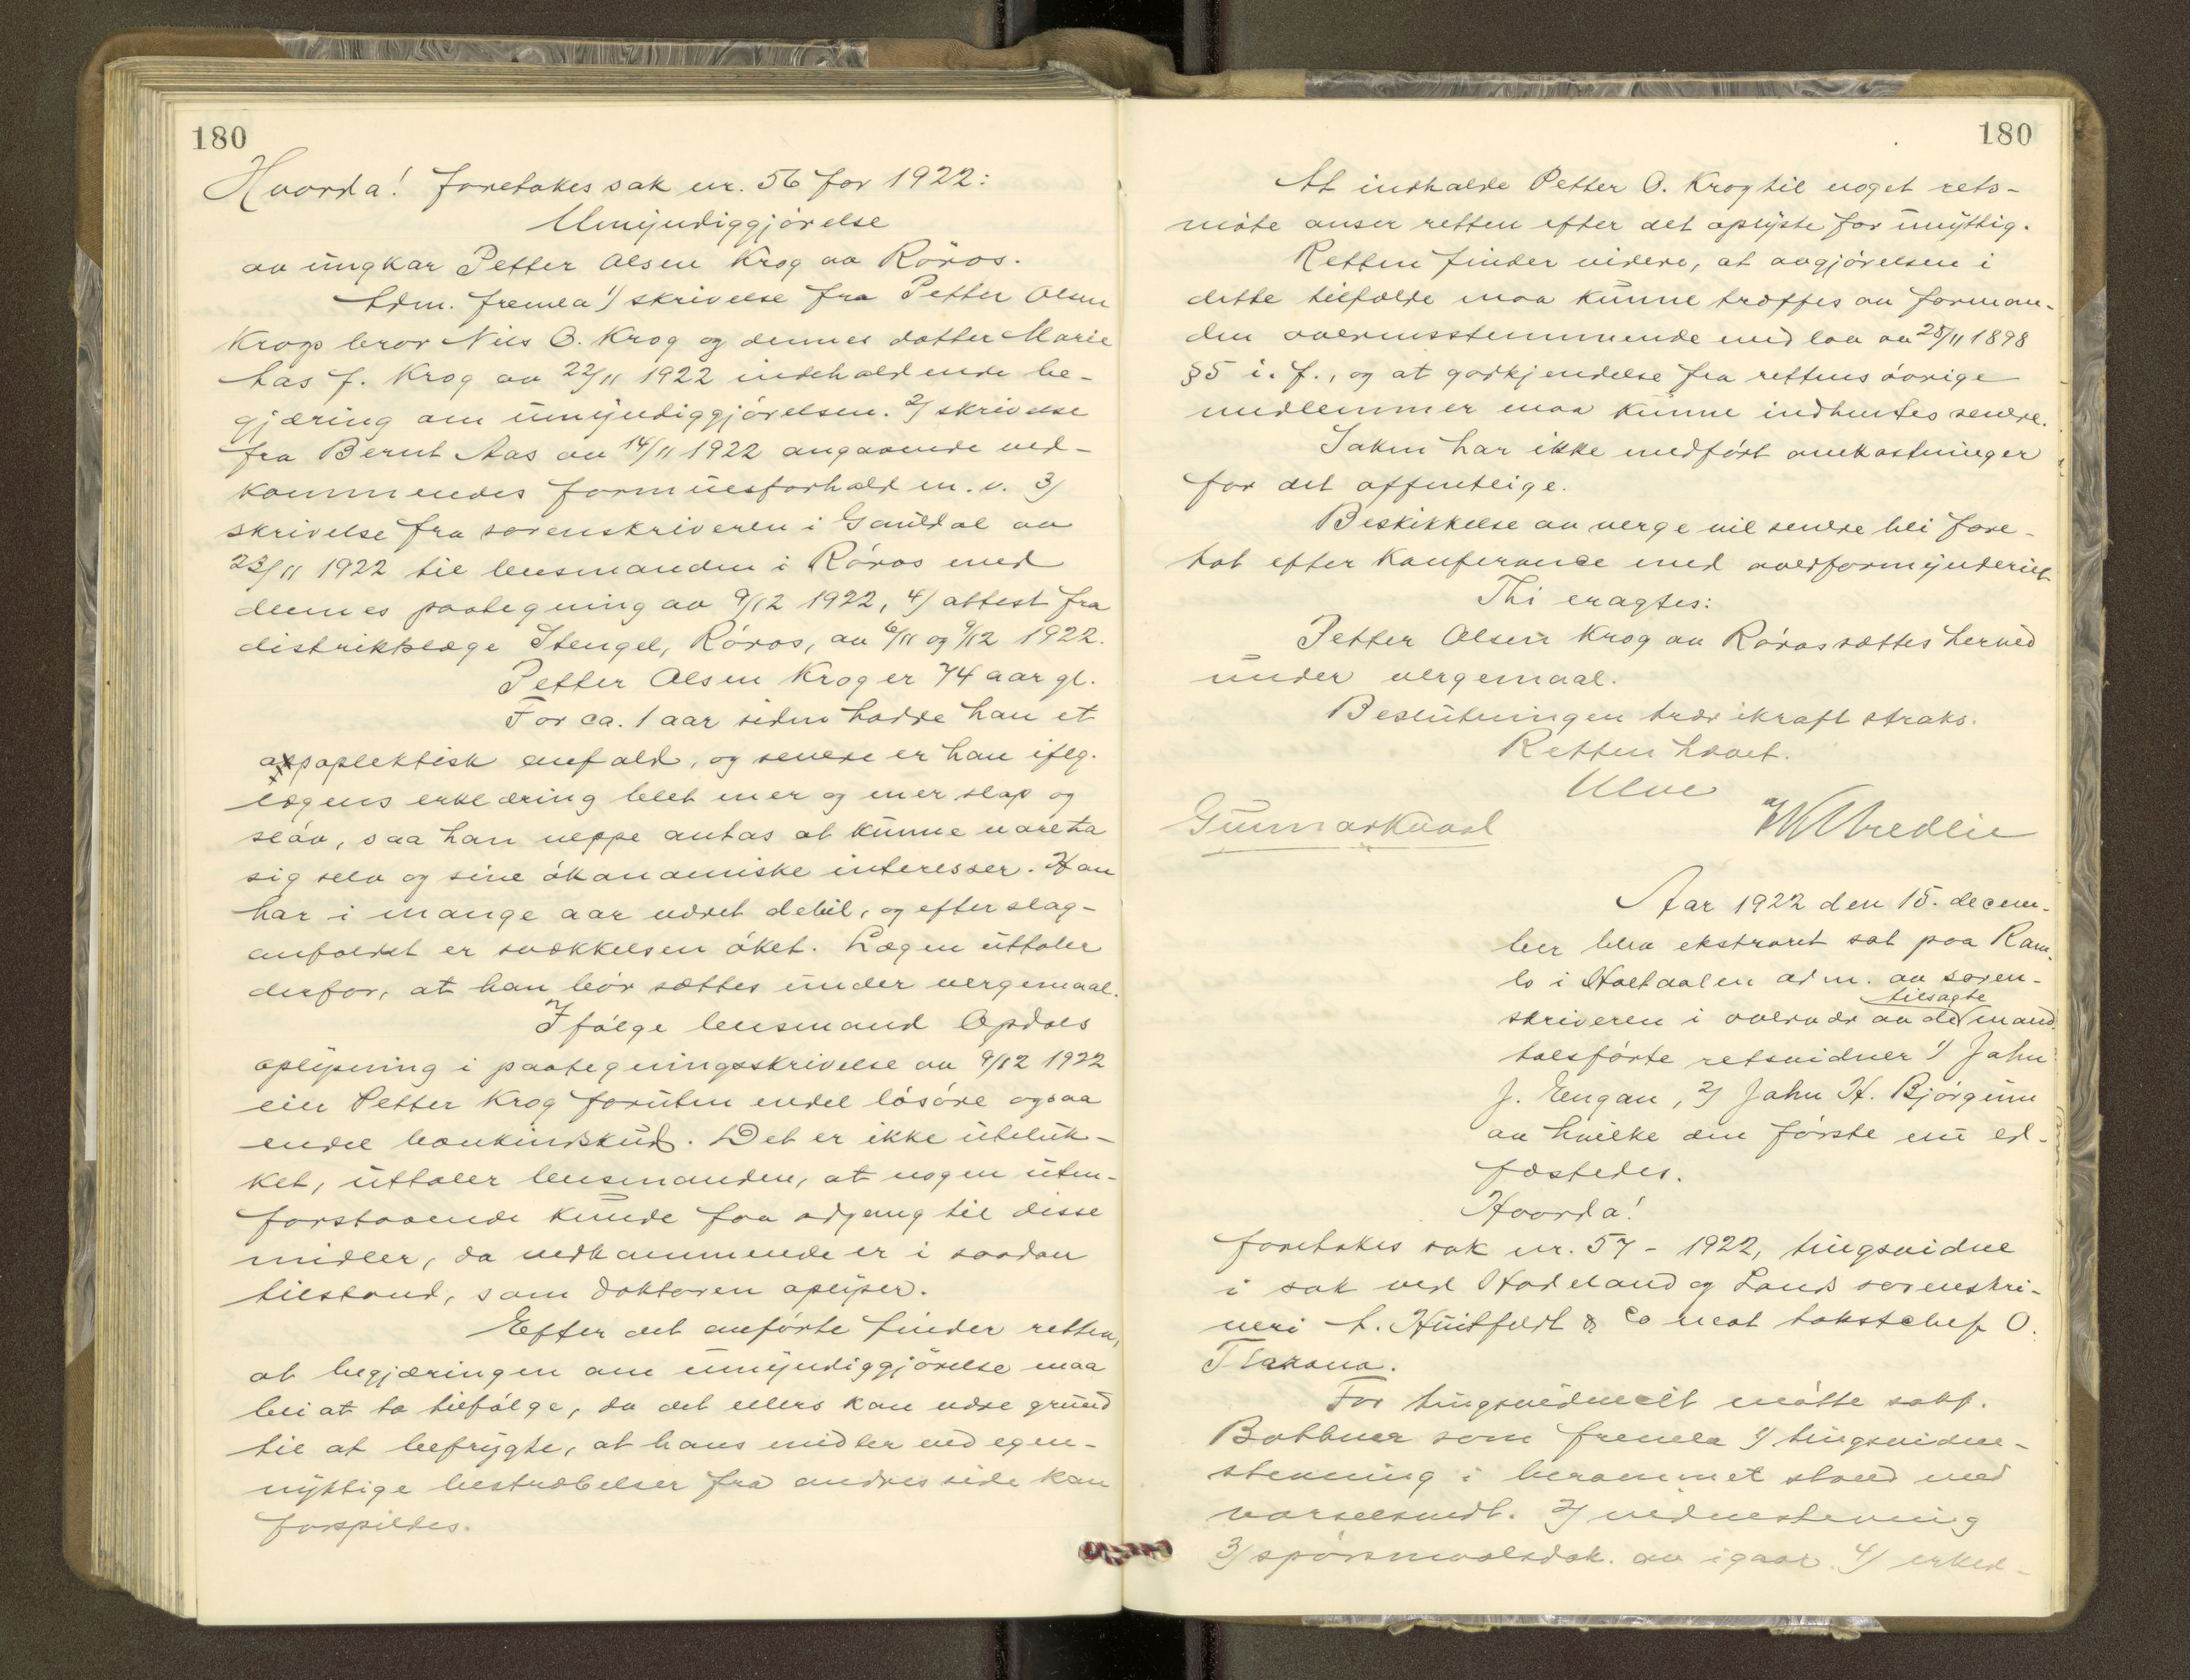 180
Hvorda! foretokes sak nr. 56 for 1922:
Umyndiggjörelse
av ungkar Petter Olsen Krog av Röros.
Adm. fremla 1/ skrivelse fra Petter Olsen
Krogs bror Nils O. Krog og dennes datter Marie
Aas f. Krog av 22/11 1922 indeholdende be-
gjæring om umyndiggjörelsen. 2/ skrivelse
fra Bernt Aas av 14/11 1922 angaaende ved-
kommendes formuesforhold m. v. 3/
skrivelse fra sorenskriveren i Gauldal av
23/11 1922 til lensmanden i Röros med
dennes paategning av 9/12 1922, 4/ attest fra
distriktslæge Stengel, Röros, av 6/11 og 9/12 1922.
Petter Olsen Krog er 74 aar gl.
For ca. 1 aar siden hadde han et
apoplektisk anfald, og senere er han iflg.
lægens erklæring blet mer og mer slap og
slöv, saa han neppe antas at kunne vareta
sig selv og sine ökonomiske interesser. Han
har i mange aar været debil, og efter slag-
anfaldet er svækkelsen öket. Lægen uttaler
derfor, at han bör sættes under vergemaal.
Ifölge lensmand Opdals
oplysning i paategningsskrivelse av 9/12 1922
eier Petter Krog foruten endel lösöre ogsaa
endel bankindskud. Det er ikke uteluk-
ket, uttaler lensmanden, at nogen uten-
forstaaende kunde faa adgang til disse
midler, da vedkommende er i saadan
tilstand, som doktoren oplyser.
Efter det anförte finder retten,
at begjæringen om umyndiggjörelse maa
bli at ta tilfölge, da det ellers kan være grund
til at befrygte, at hans midler ved egen-
nyttige bestræbelser fra andres side kan
forspildes.
180
At indkalde Petter O. Krog til noget rets-
möte anser retten efter det oplyste for unyttig.
Retten finder videre, at avgjörelsen i
dette tilfælde maa kunne træffes av forman-
den overensstemmende med lov av 28/11 1898
§5 i. f., og at godkjendelse fra rettens övrige
medlemmer maa kunne indhentes senere.
Saken har ikke medfört omkostninger
for det offentlige.
Beskikkelse av verge vil senere bli fore-
tat efter konferance med overformynderiet
Thi eragtes:
Petter Olsen Krog av Röros sættes herved
under vergemaal.
Beslutningen trær ikraft straks.
Retten hævet.
Ulve
Gunnar Kvaal
Aar 1922 den 15. decem-
ber blev ekstraret sat paa Ram-
lo i Holtaalen adm. av soren-
skriveren i overvær av de tilsagte mand-
talsförte retsvidner 1/ John
J. Engan, 2/ John H. Bjørgum
av hvilke den förste nu ed-
fæstedes.
Hvorda!
foretokes sak nr. 57 - 1922, tingsvidne
i sak ved Hadeland og Lands sorenskri-
veri A. Huitfeldt & Co mot takstchef O.
For tingsvidnet mötte sakf.
som fremla 1/ tingsvidne-
stevning i berammet stand med
varselsmdt. 2/ vidnestevning
3/ spörsmaalsdok. av igaar 4/ erklæ-